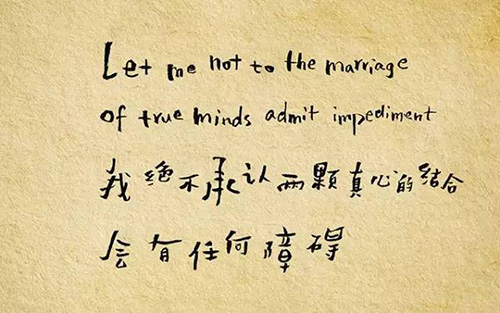 Let me not to the marriage
of true minds admit impediment
我绝不承认两颗真心的结合
会有任何障碍